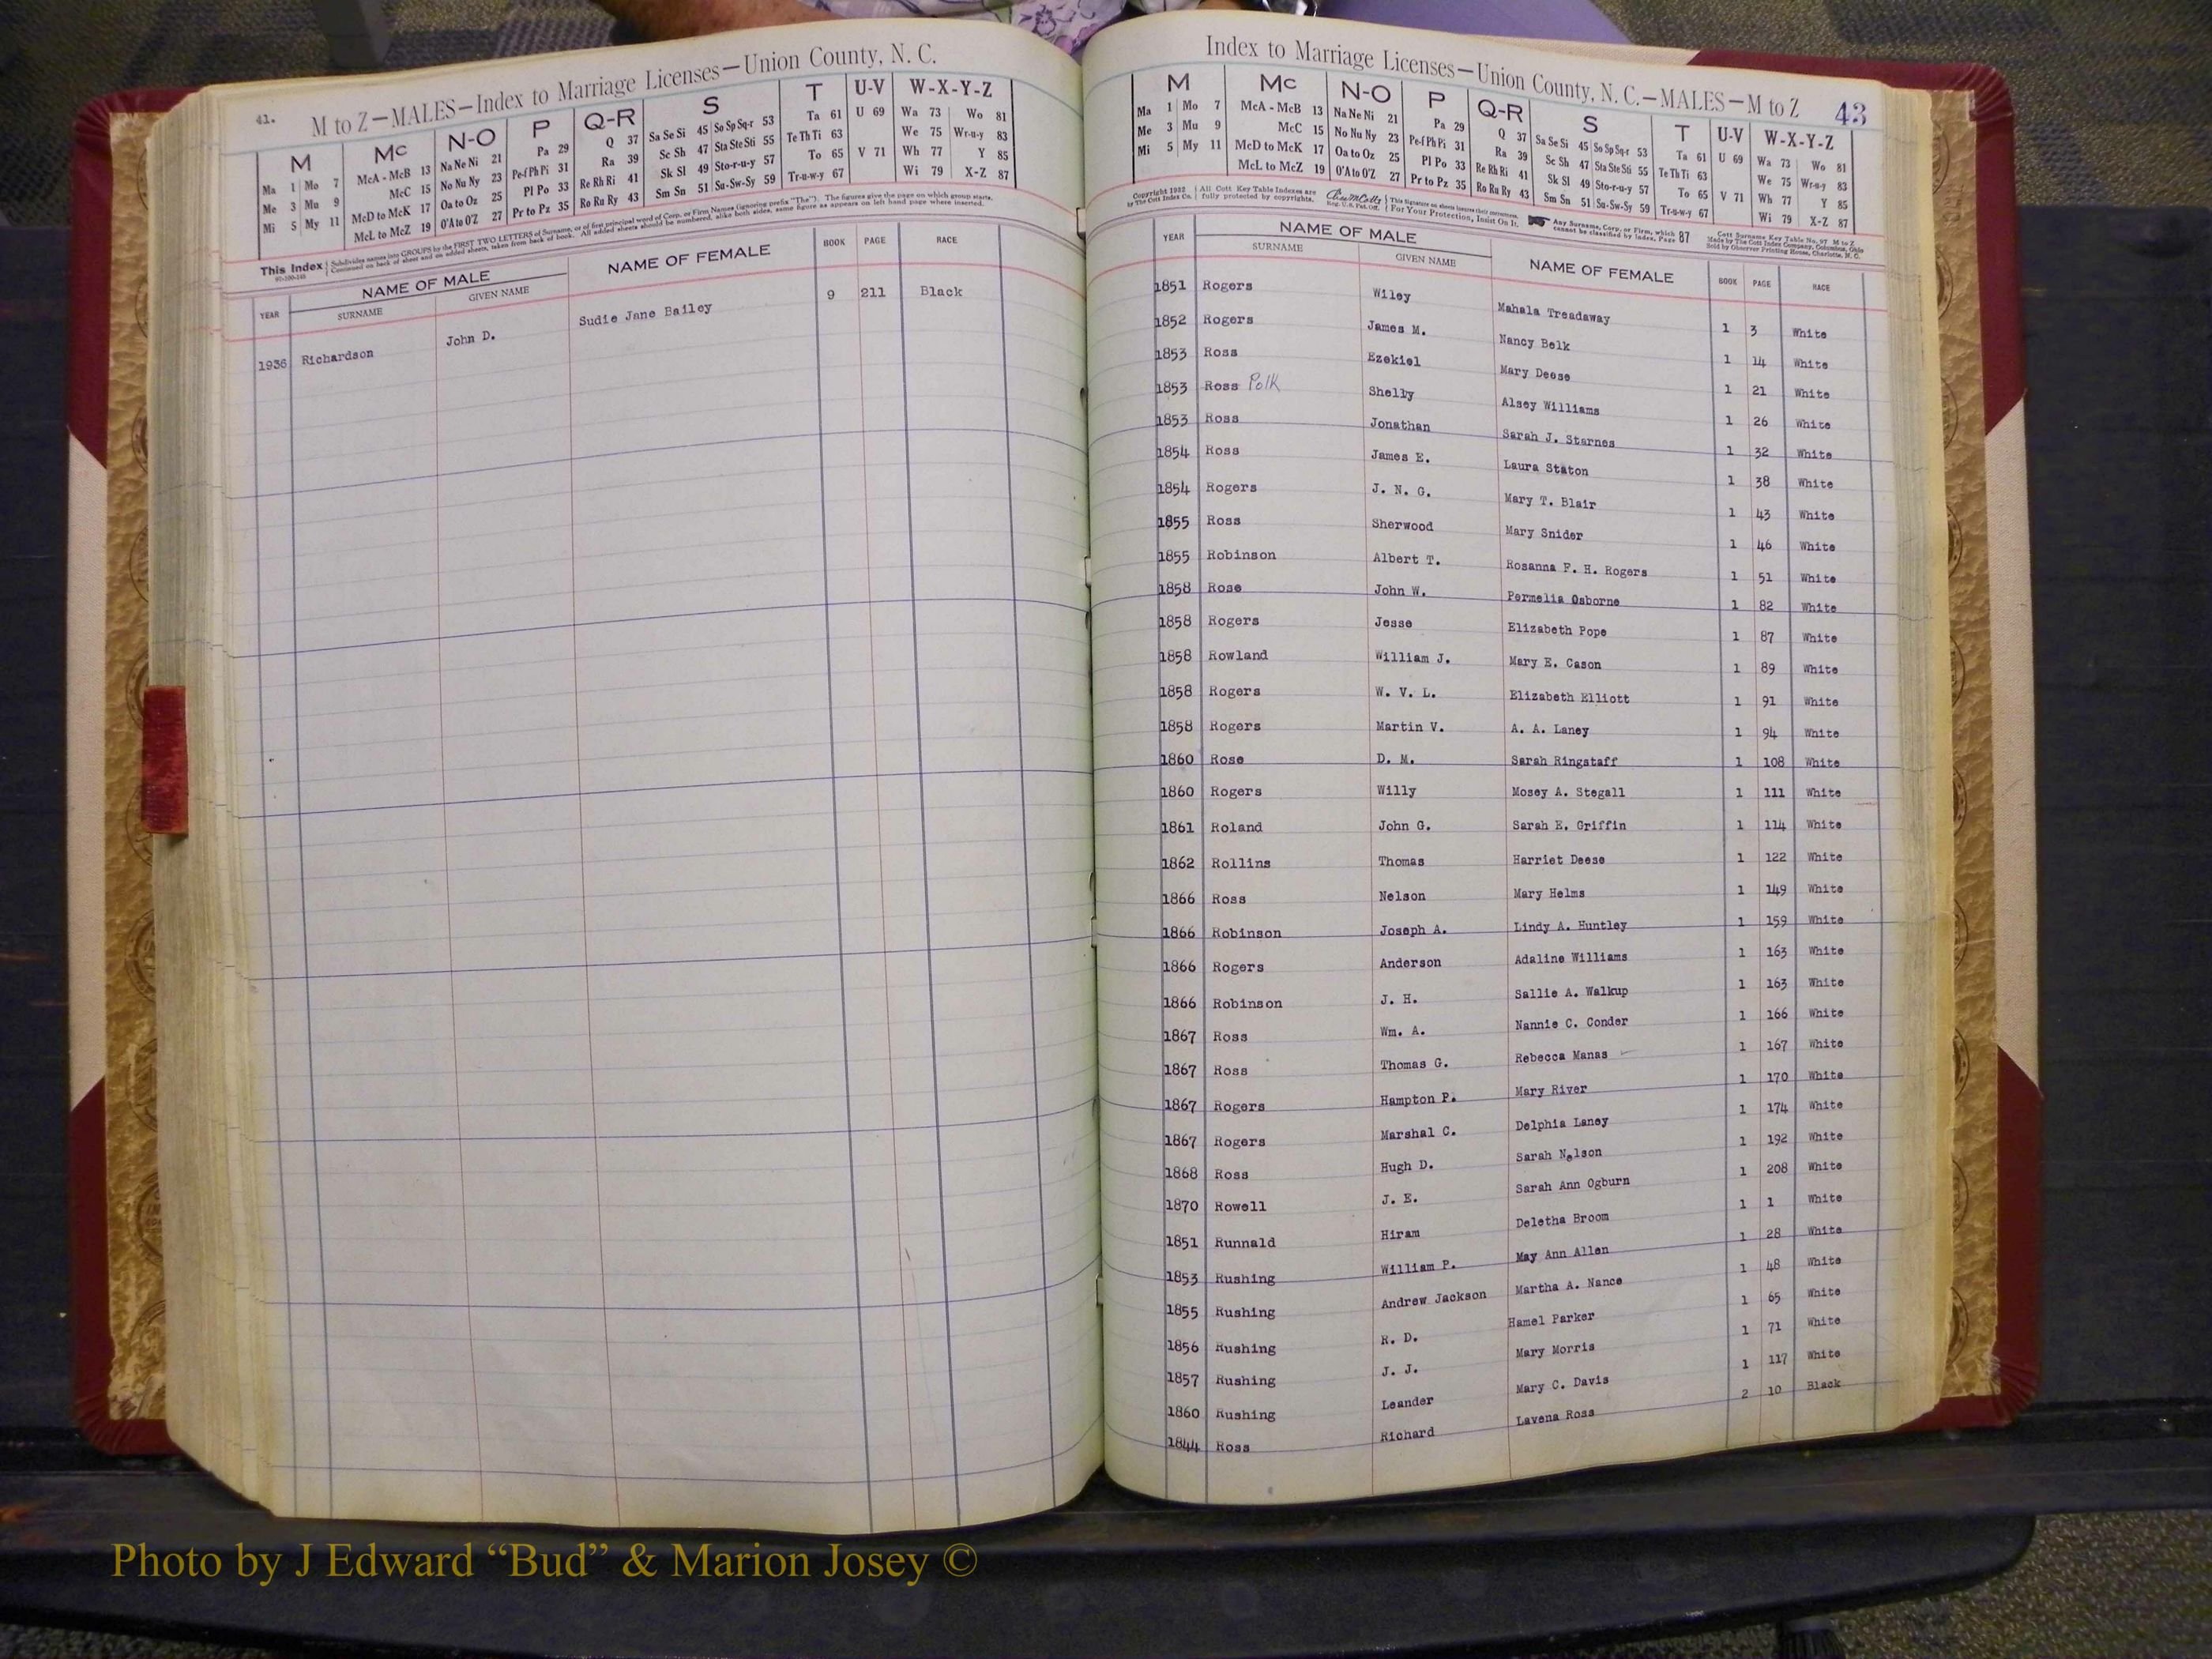 41.
M to Z—MALES—Index to Marriage Licenses—Union County, N. C.
M Mc N-O P Q-R S T U-V W-X-Y-Z
Ma 1 Mo 7 McA - McB 13 Na Ne Ni 21 Pa 29 Q 37 Sa Se Si 45 So Sp Sq-r 53 Ta 61 U 69 Wa 73 Wo 81
Me 3 Mu 9 McC 15 No Nu Ny 23 Pe-f Ph Pi 31 Ra 39 Sc Sh 47 Sta Ste Sti 55 Te Th Ti 63 We 75 Wr-u-y 83
Mi 5 My 11 McD to McK 17 Oa to Oz 25 Pl Po 33 Re Rh Ri 41 Sk Sl 49 Sto-r-u-y 57 To 65 V 71 Wh 77 Y 85
McL to McZ 19 O'A to O'Z 27 Pr to Pz 35 Ro Ru Ry 43 Sm Sn 51 Su-Sw-Sy 59 Tr-u-w-y 67 Wi 79 X-Z 87
This Index Subdivides names into GROUPS by the FIRST TWO LETTERS of Surname, or of first principal word of Corp. or Firm Names (ignoring prefix "The"). The figures give the page on which group starts.
Continued on back of sheet and on added sheets, taken from back of book. All added sheets should be numbered, alike both sides, same figure as appears on left hand page where inserted.
YEAR NAME OF MALE NAME OF FEMALE BOOK PAGE RACE
SURNAME GIVEN NAME
1936 Richardson John D. Sudie Jane Bailey 9 211 Black
Index to Marriage Licenses—Union County, N. C.—MALES—M to Z 43
M Mc N-O P Q-R S T U-V W-X-Y-Z
Ma 1 Mo 7 McA - McB 13 Na Ne Ni 21 Pa 29 Q 37 Sa Se Si 45 So Sp Sq-r 53 Ta 61 U 69 Wa 73 Wo 81
Me 3 Mu 9 McC 15 No Nu Ny 23 Pe-f Ph Pi 31 Ra 39 Sc Sh 47 Sta Ste Sti 55 Te Th Ti 63 We 75 Wr-u-y 83
Mi 5 My 11 McD to McK 17 Oa to Oz 25 Pl Po 33 Re Rh Ri 41 Sk Sl 49 Sto-r-u-y 57 To 65 V 71 Wh 77 Y 85
McL to McZ 19 O'A to O'Z 27 Pr to Pz 35 Ro Ru Ry 43 Sm Sn 51 Su-Sw-Sy 59 Tr-u-w-y 67 Wi 79 X-Z 87
Copyright 1932 by The Cott Index Co. All Cott Key Table Indexes are fully protected by copyrights. Reg. U.S. Pat. Off. For Your Protection, Insist On It. Any Surname, Corp. or Firm, which cannot be classified by index, Page 87
Cott Surname Key Table No. 97 M to Z
Made by The Cott Index Company, Columbus, Ohio
Sold by Observer Printing House, Charlotte, N. C.
YEAR NAME OF MALE NAME OF FEMALE BOOK PAGE RACE
SURNAME GIVEN NAME
1851 Rogers Wiley Mahala Treadaway 1 3 White
1852 Rogers James M. Nancy Belk 1 14 White
1853 Ross Ezekiel Mary Deese 1 21 White
1853 Ross Polk Shelly Alsey Williams 1 26 White
1853 Ross Jonathan Sarah J. Starnes 1 32 White
1854 Ross James E. Laura Staton 1 38 White
1854 Rogers J. N. G. Mary T. Blair 1 43 White
1855 Ross Sherwood Mary Snider 1 46 White
1855 Robinson Albert T. Rosanna F. H. Rogers 1 51 White
1858 Rose John W. Permelia Osborne 1 82 White
1858 Rogers Jesse Elizabeth Pope 1 87 White
1858 Rowland William J. Mary E. Cason 1 89 White
1858 Rogers W. V. L. Elizabeth Elliott 1 91 White
1858 Rogers Martin V. A. A. Laney 1 94 White
1860 Rose D. M. Sarah Ringstaff 1 108 White
1860 Rogers Willy Mosey A. Stegall 1 111 White
1861 Roland John G. Sarah E. Griffin 1 114 White
1862 Rollins Thomas Harriet Deese 1 122 White
1866 Ross Nelson Mary Helms 1 149 White
1866 Robinson Joseph A. Lindy A. Huntley 1 159 White
1866 Rogers Anderson Adaline Williams 1 163 White
1866 Robinson J. H. Sallie A. Walkup 1 163 White
1867 Ross Wm. A. Nannie C. Conder 1 166 White
1867 Ross Thomas G. Rebecca Manas 1 167 White
1867 Rogers Hampton P. Mary River 1 170 White
1867 Rogers Marshal C. Delphia Laney 1 174 White
1868 Ross Hugh D. Sarah Nelson 1 192 White
1870 Rowell J. E. Sarah Ann Ogburn 1 208 White
1851 Runnald Hiram Deletha Broom 1 1 White
1853 Rushing William P. May Ann Allen 1 28 White
1855 Rushing Andrew Jackson Martha A. Nance 1 48 White
1856 Rushing R. D. Hamel Parker 1 65 White
1857 Rushing J. J. Mary Morris 1 71 White
1860 Rushing Leander Mary C. Davis 1 117 White
1844 Ross Richard Lavena Ross 2 10 Black
Photo by J Edward “Bud” & Marion Josey ©